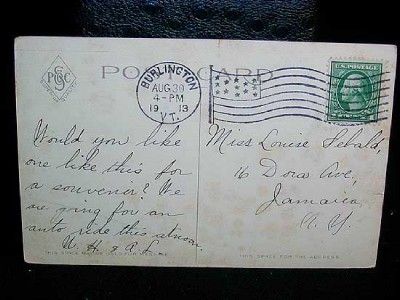 POST CARD
BURLINGTON
AUG 30
4-PM
1913
VT.
U.S. POSTAGE
Would you like
one like this for
a souvenir? We
are going for an
auto ride this
Miss Louise Sebald,
16 Dora Ave,
Jamaica
N. Y.
THIS SPACE FOR THE ADDRESS